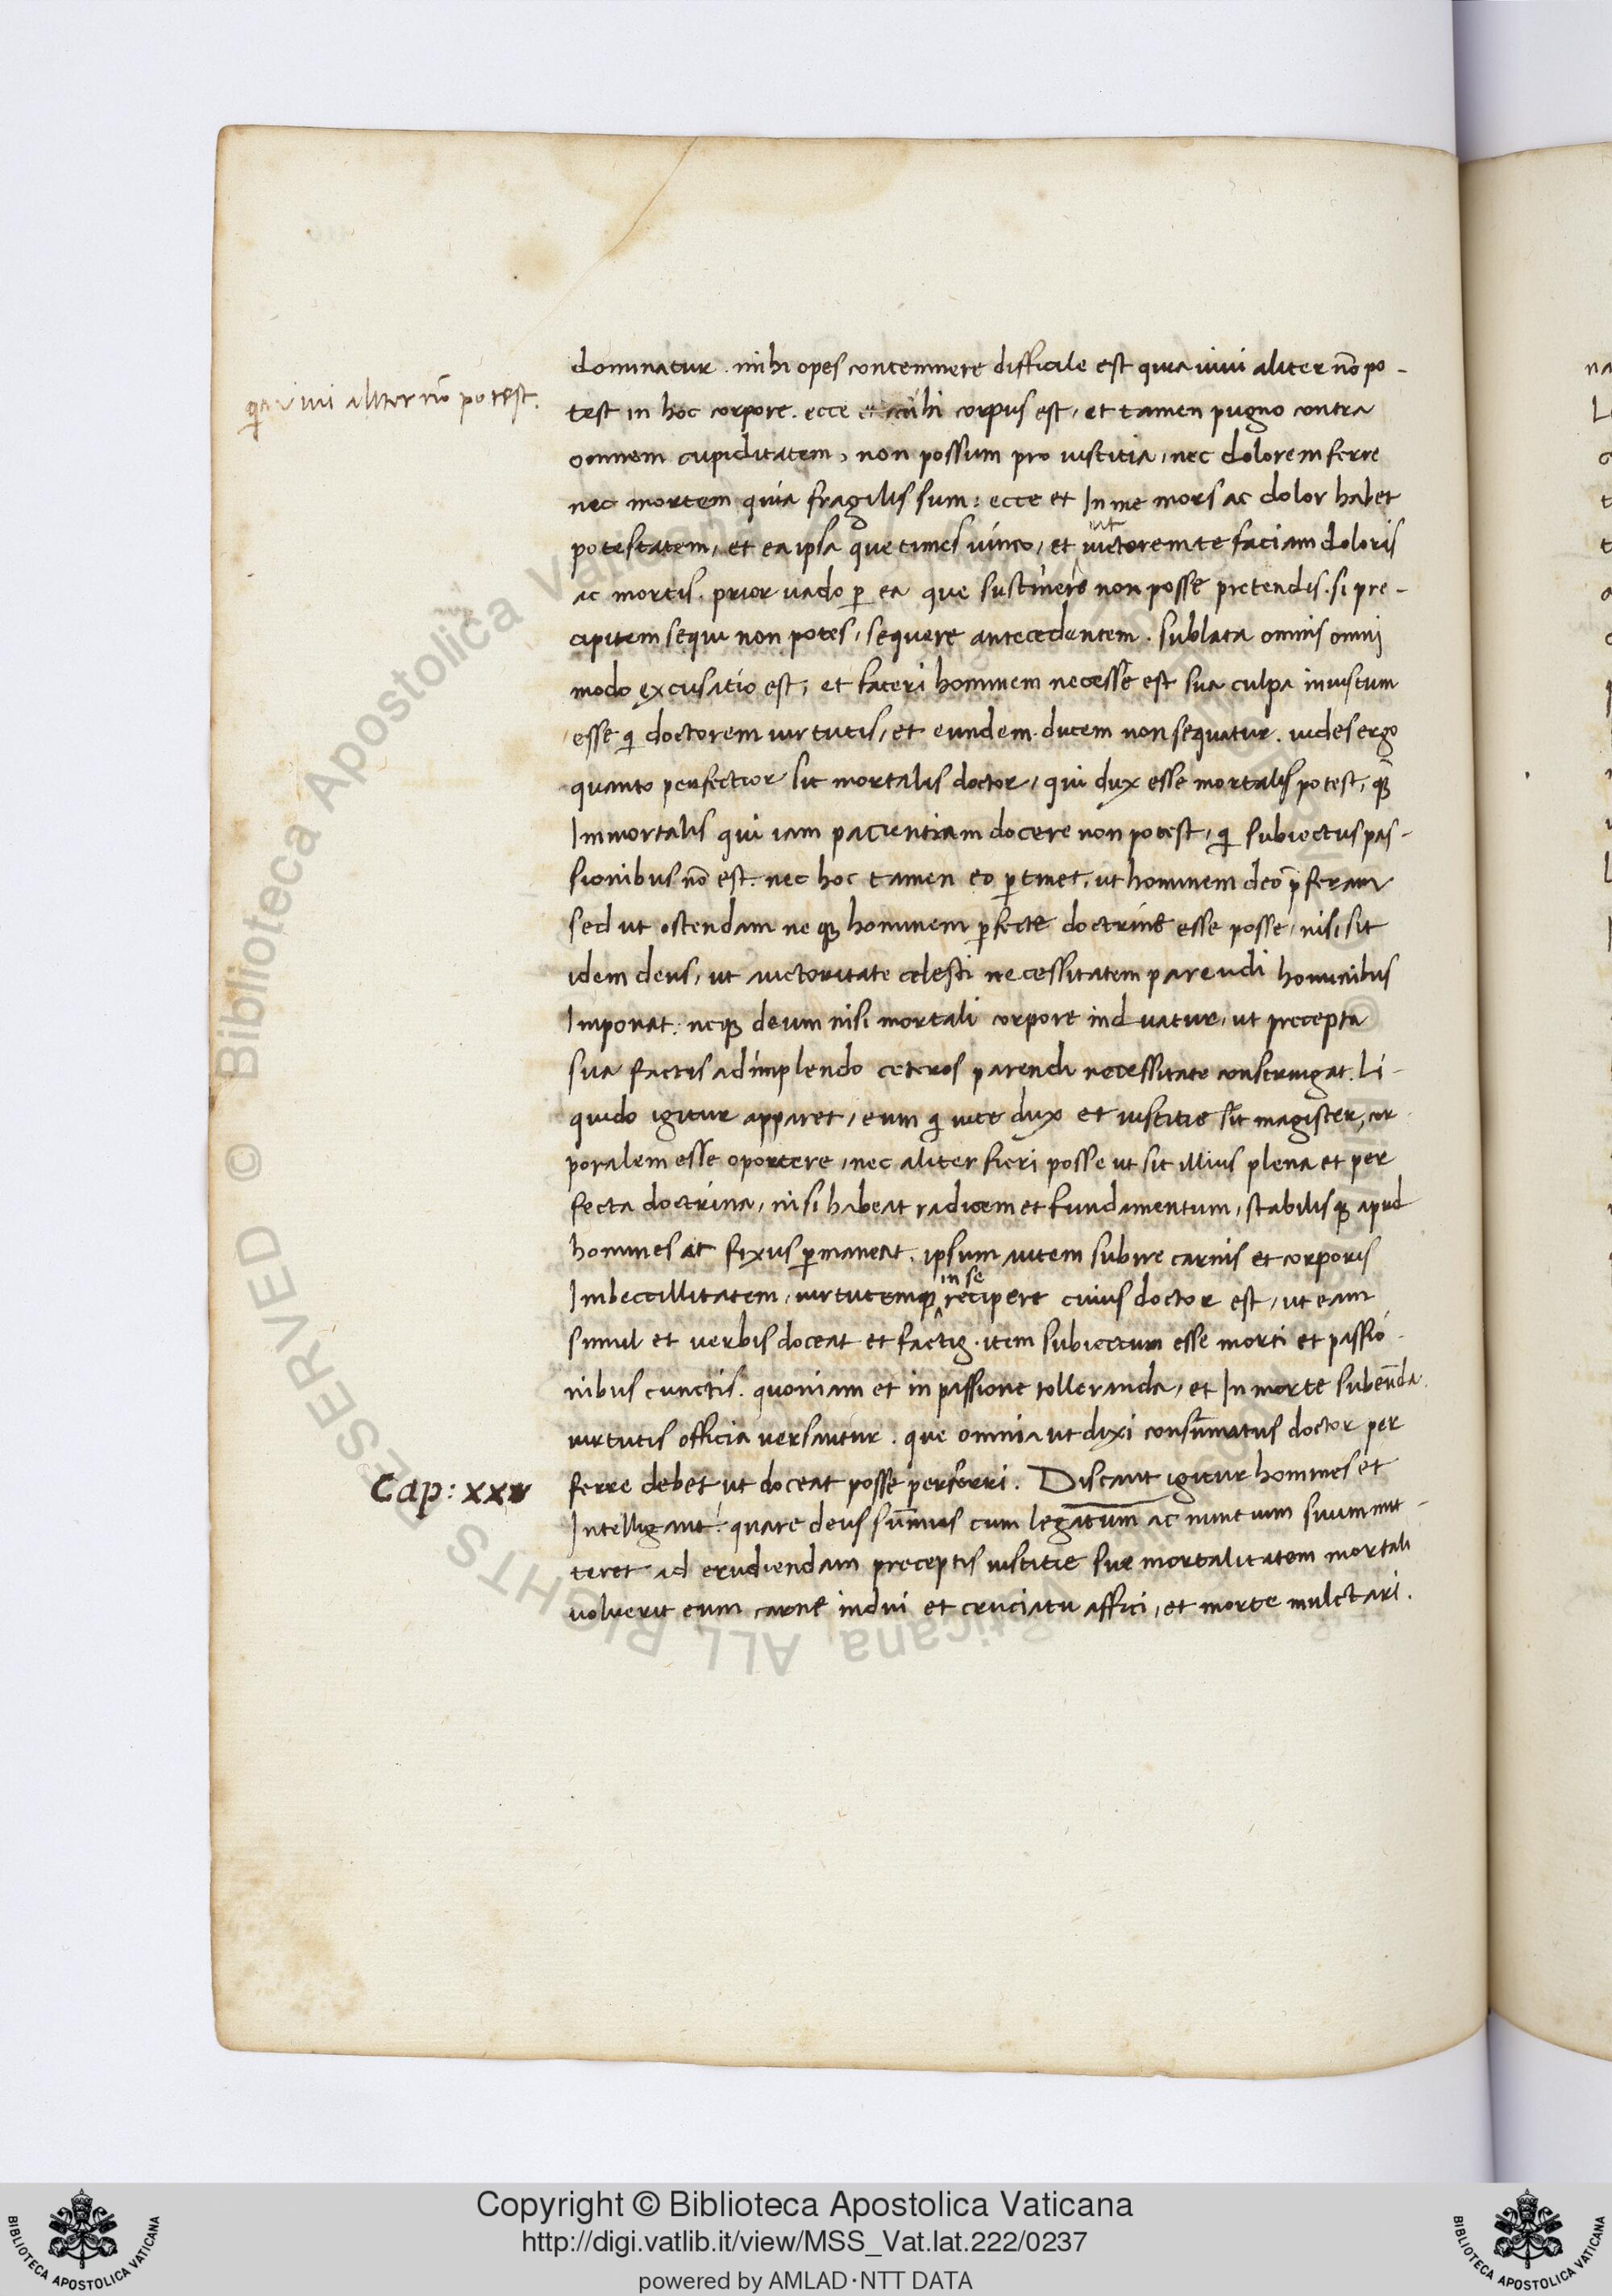 dominatur. mihi opes contemnere difficile est quia uiui aliter nō po-
quia uiui aliter nō potest.
test in hoc corpore. ecce et mihi corpus est, et tamen pugno contra
omnem cupiditatem, non possum pro iustitia, nec dolorem ferre
nec mortem quia fragilis sum: ecce et In me mors ac dolor habet
ut
potestatem, et ea ipsa que times uinco, et uictorem te faciam doloris
ac mortis. prior uado p̱ ea que sustinere non posse pretendis. si pre-
cipitem sequi non potes, sequere antecedentem. sublata omnis omni
modo excusatio est, et fateri hominem necesse est sua culpa iniustum
esse q̇ doctorem uirtutis, et eundem ducem non sequatur. uides ergo
quanto perfectior sit mortalis doctor, qui dux esse mortalis potest, qȝ̄
Immortalis qui iam pacientiam docere non potest, q̇ subiectus pas-
sionibus nō est. nec hoc tamen eo p̱tinet, ut hominem deo p̄feram
sed ut ostendam neqȝ hominem p̱fecte doctrine esse posse, nisi sit
idem deus, ut auctoritate celesti necessitatem parendi hominibus
Imponat: neqȝ deum nisi mortali corpore induatur, ut precepta
sua factis adimplendo ceteros parendi necessitate constringat. Li-
quido igitur apparet, eum q̇ uite dux et iustitie sit magister, cor
poralem esse oportere, nec aliter fieri posse ut sit illius plena et per
fecta doctrina, nisi habeat radicem et fundamentum, stabilisqȝ apud
homines at fixus p̱maneat. ipsum autem subire carnis et corporis
in se
Imbecillitatem, uirtutemqȝ recipere cuius doctor est, ut eam
simul et uerbis doceat et factis. item subiectum esse morti et passio-
nibus cunctis. quoniam et in passione tolleranda, et In morte subeūda
uirtutis officia uersantur. que omnia ut dixi consūmatus doctor per
Cap: xxv
ferre debet ut doceat posse perferri. Discant igitur homines et
Intelligant: quare deus sūmus cum legatum ac nuntium suum mit-
teret ad erudiendam preceptis iustitie sue mortalitatem mortali
uoluerit eum carne indui et cruciatu affici, et morte mulctari.
Copyright © Biblioteca Apostolica Vaticana
http://digi.vatlib.it/view/MSS_Vat.lat.222/0237
powered by AMLAD·NTT DATA